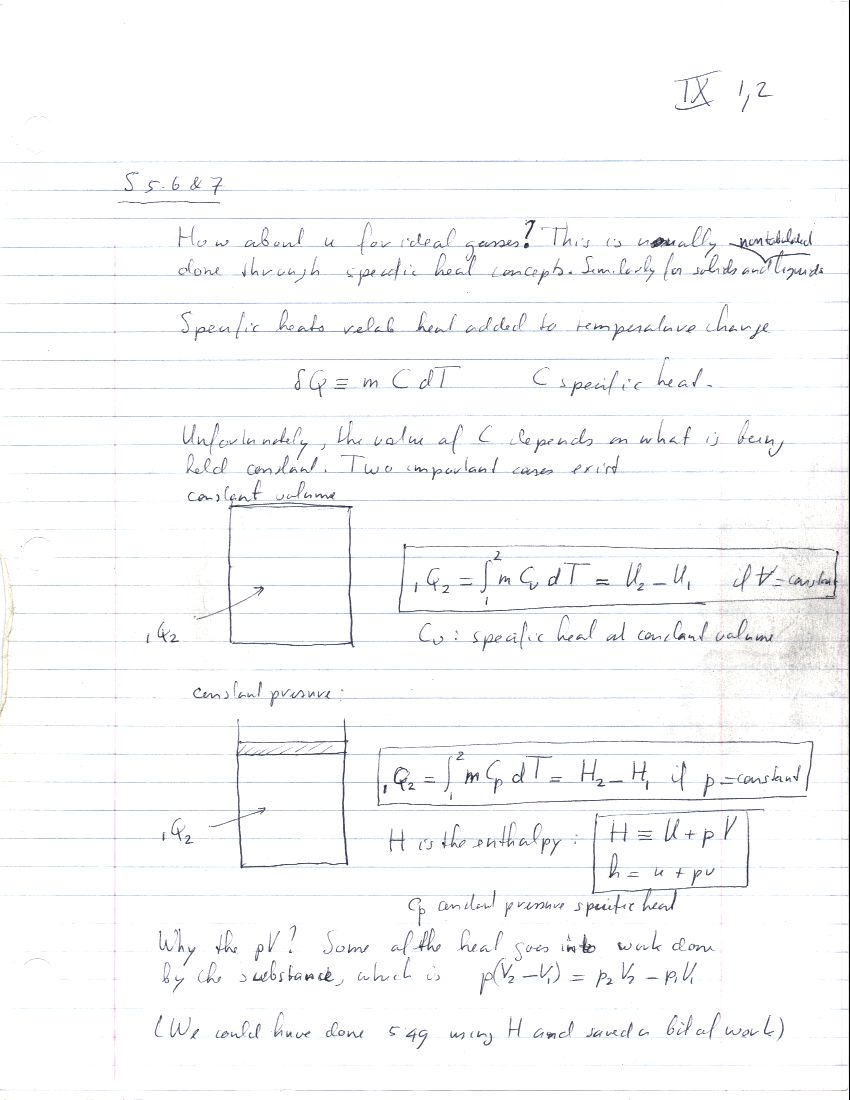 IX 1,2
S 5.6 & 7
How about u for ideal gasses? This is usually
nontabulated
done through specific heat concepts. Similarly for solids and liquids
Specific heats relate heat added to temperature change
δQ ≡ m C dT C specific heat.
Unfortunately, the value of C depends on what is being
held constant. Two important cases exist
constant volume
₁Q₂ = ∫₁² m Cᵥ dT = U₂ − U₁ if V = constant
₁Q₂
Cᵥ : specific heat at constant volume
constant pressure:
₁Q₂ = ∫₁² m Cₚ dT = H₂ − H₁ if p = constant
₁Q₂
H is the enthalpy : H ≡ U + pV
h = u + pv
Cₚ constant pressure specific heat
Why the pV? Some of the heat goes into work done
by the substance, which is p(V₂ − V₁) = p₂V₂ − p₁V₁
(We could have done 5.49 using H and saved a bit of work)